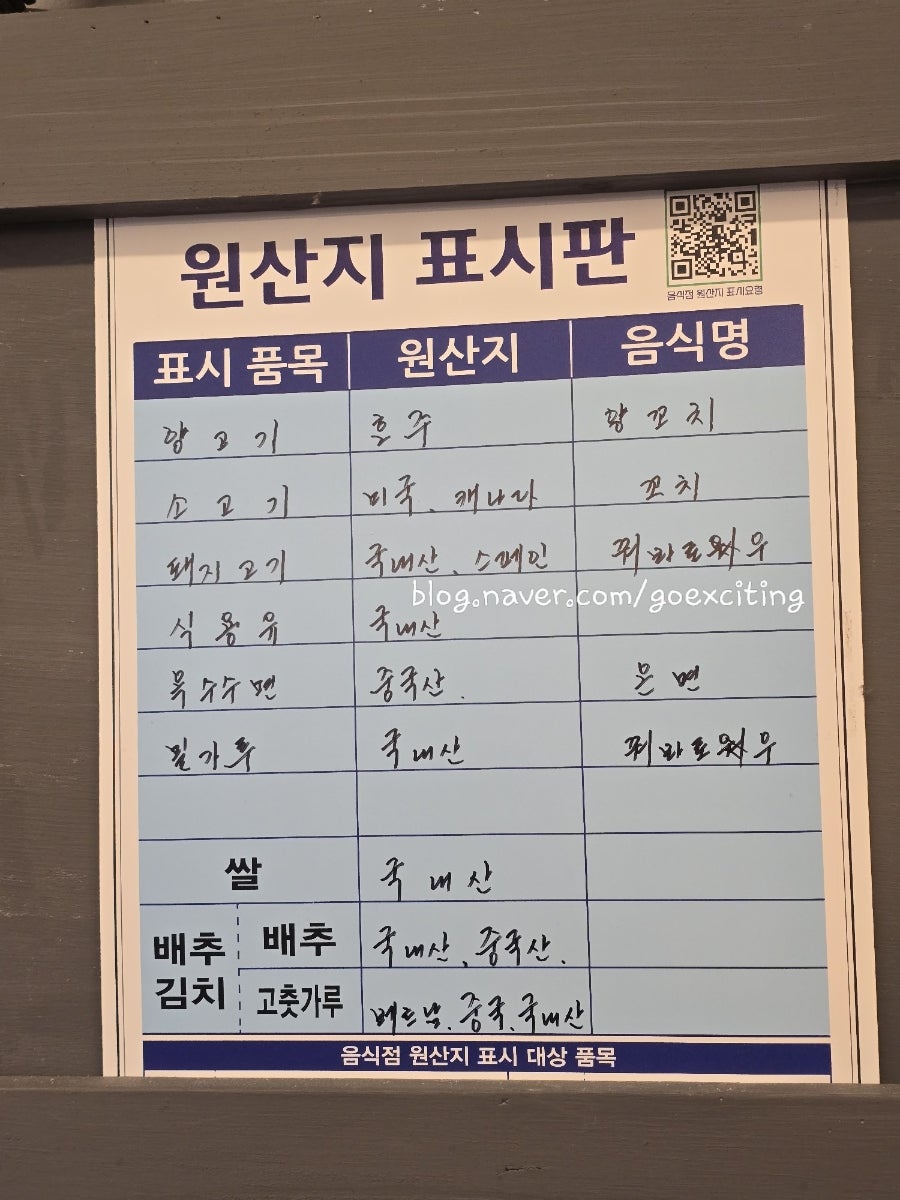 원산지 표시판
음식점 원산지 표시요령
표시 품목 원산지 음식명
양 고 기 호 주 양 꼬 치
소 고 기 미국, 캐나다 꼬 치
돼지 고기 국내산, 스페인 꿔 바 로 우
blog.naver.com/goexciting
식 용 유 국내산
옥 수수 면 중국산. 온 면
밀 가 루 국내산 꿔 바 로 우
쌀 국 내 산
배추 김치 배추 국내산, 중국산,
고춧가루 베트남, 중국, 국내산
음식점 원산지 표시 대상 품목